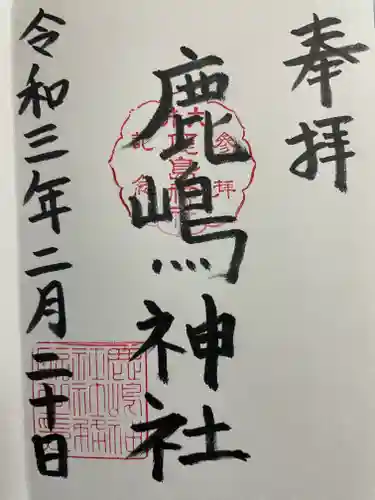 奉拝
鹿嶋神社
令和三年二月二十日